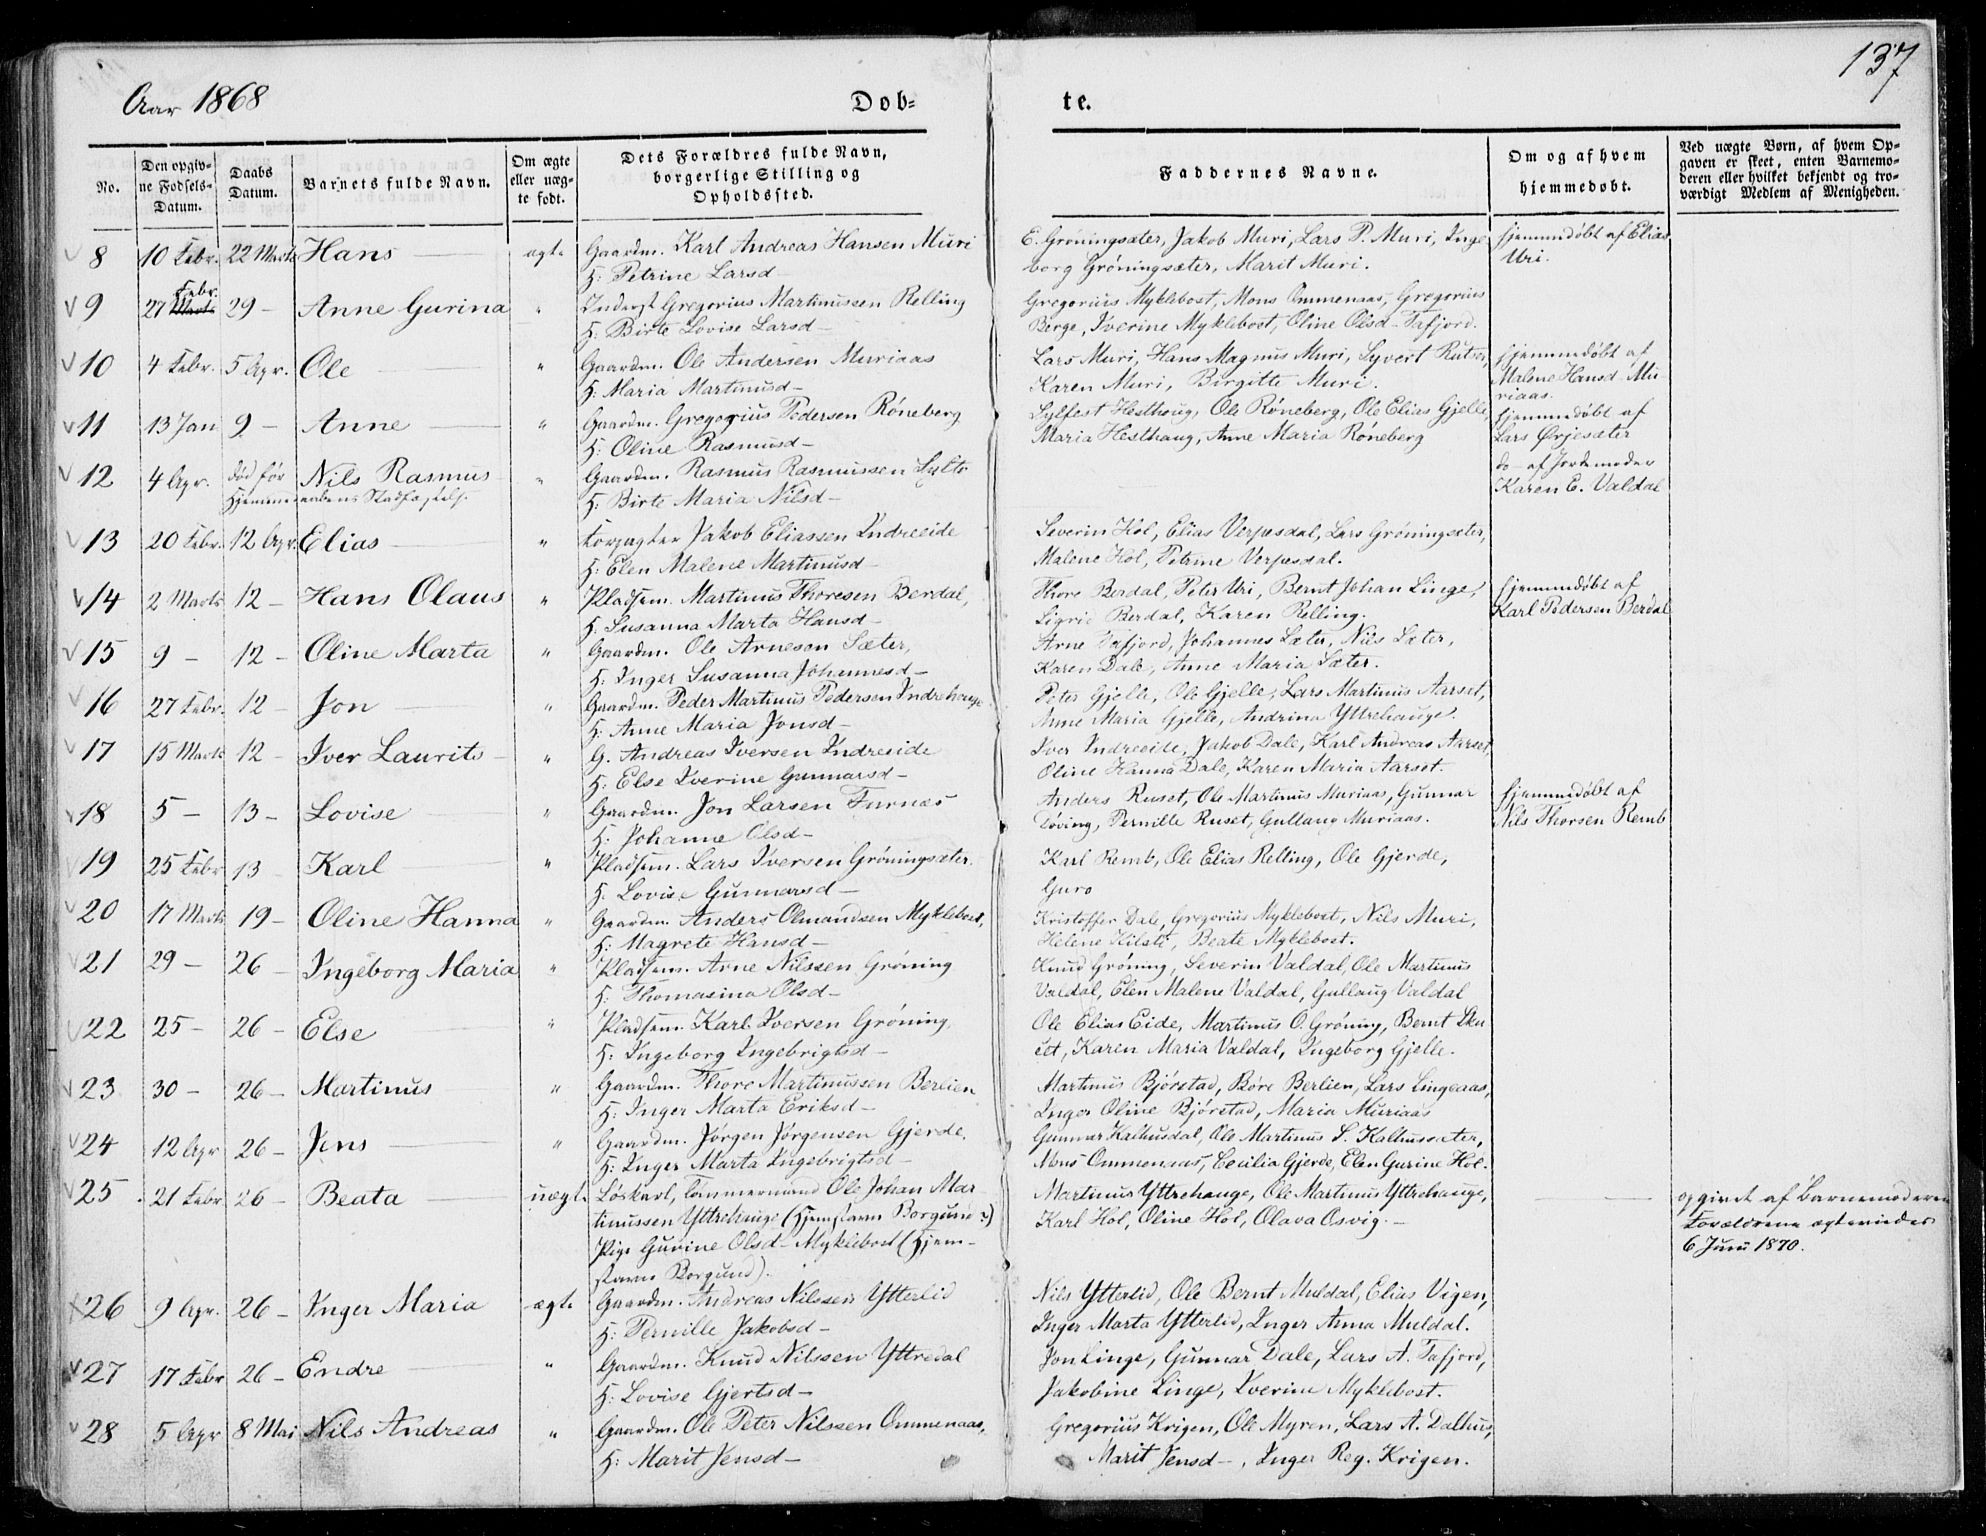 Aar 1868
Døb=
te.
137
No.
Den opgiv-
ne Fødsels-
Datum.
Daabs
Datum.
Barnets fulde Navn.
Om ægte
eller uæg-
te født.
Dets Forældres fulde Navn,
borgerlige Stilling og
Opholdssted.
Faddernes Navne.
Om og af hvem
hjemmedøbt.
Ved uægte Børn, af hvem Op-
gaven er skeet, enten Barnemo-
deren eller hvilket bekjendt og tro-
værdigt Medlem af Menigheden.
8 10 Febr. 22 Marts Hans ægte Gaardm. Karl Andreas Hansen Muri E. Grøningsæter, Jakob Muri, Lars P. Muri, Inge hjemmedøbt af Elias
H: Petrine Larsd- borg Grøningsæter, Marit Muri. Uri.
9 27 Febr. 29- Anne Gurina " Inderst Gregorius Martinussen Relling Gregorius Myklebost, Mons Ommenaas, Gregorius
H: Birte Lovise Larsd- Berge, Iverine Myklebost, Oline Olsd- Tafjord.
10 4 Febr. 5 Apr. Ole " Gaardm. Ole Andersen Muriaas Lars Muri, Hans Magnus Muri, Syvert hjemmedøbt af
H: Maria Martinusd- Karen Muri, Birgitte Muri. Malene Hansd- Mu-
riaas.
11 13 Jan 9- Anne " Gaardm. Gregorius Pedersen Røneberg Sylfest Hesthaug, Ole Røneberg, Ole Elias Gjelle hjemmedøbt af
H: Oline Rasmusd- Maria Hesthaug, Anne Maria Røneberg Lars Ørjesæter
12 4 Apr. død før Nils Rasmus " Gaardm. Rasmus Rasmussen Sylte do- af Jordemoder
Hjemmedaabens Stadfæstelse H: Birte Maria Nilsd- Karen E. Valdal
13 20 Febr. 12 Apr. Elias " Forpagter Jakob Eliassen Indreeide Severin Hol, Elias Verpesdal, Lars Grøningsæter,
H: Elen Malene Martinusd- Malene Hol, Petrine Verpesdal.
14 2 Marts 12- Hans Olaus " Pladsm. Martinus Thoresen Berdal, Thore Berdal, Peter Uri, Bernt Johan Linge, hjemmedøbt af
H: Susanna Marta Hansd- Sigrie Berdal, Karen Relling. Karl Pedersen Berdal
15 9- 12- Oline Marta " Gaardm. Ole Arneson Sæter, Arne Tafjord, Johannes Sæter, Nils Sæter,
H: Inger Susanna Johannesd- Karen Dale, Anne Maria Sæter.
16 27 Febr. 12- Jon " Gaardm. Peder Martinus Pedersen Indrehauge Peter Gjelle, Ole Gjelle, Lars Martinus Aarset,
H: Anne Maria Jonsd- Anne Maria Gjelle, Andrina Yttrehauge.
17 15 Marts 12- Iver Laurits " G. Andreas Iversen Indreeide Iver Indreeide, Jakob Dale, Karl Andreas Aarset,
H: Else Iverine Gunnarsd- Oline Hanna Dale, Karen Maria Aarset.
18 5- 13- Lovise " Gaardm. Jon Larsen Furnæs Anders Ruset, Ole Martinus Muriaas, Gunnar hjemmedøbt af
H: Johanne Olsd- Døving, Pernille Ruset, Gullaug Muriaas. Nils Thorsen Remb
19 25 Febr 13- Karl " Pladsm. Lars Iversen Grøningsæter. Karl Remb, Ole Elias Relling, Ole Gjerde,
H: Lovise Gunnarsd- Guro
20 17 Marts 19- Oline Hanna " Gaardm. Anders Olmandsen Myklebost, Kristoffer Dale, Gregorius Myklebost, Nils Muri,
H: Magrete Hansd- Helene Kilsti, Beate Myklebost.
21 29- 26- Ingeborg Maria " Pladsm. Arne Nilssen Grøning Knud Grøning, Severin Valdal, Ole Martinus
H: Thomasina Olsd- Valdal, Elen Malene Valdal, Gullaug Valdal
22 25- 26- Else " Pladsm. Karl Iversen Grøning, Ole Elias Eide, Martinus O. Grøning, Bernt
H: Ingeborg Ingebrigtsd- Karen Maria Valdal, Ingeborg Gjelle.
23 30- 26- Martinus " Gaardm. Thore Martinussen Berlien Martinus Bjørstad, Børe Berlien, Lars Lingeaas,
H: Inger Marta Eriksd- Inger Oline Bjørstad, Maria Muriaas
24 12 Apr 26- Jens " Gaardm. Jørgen Jørgensen Gjerde, Gunnar Kalhusdal, Ole Martinus S. Kalhussæter,
H: Inger Marta Ingebrigtsd- Mons Ommenaas, Cecilia Gjerde, Elen Gurine Hol.
25 21 Febr 26- Beata uægte Løskarl, Tømmermand Ole Johan Mar Martinus Yttrehauge, Ole Martinus Yttrehauge, opgivet af Barnemoderen
tinussen Yttrehauge (Hjemstavn Borgund?) Karl Hol, Oline Hol, Olava Osvig.- Forældrene ægteviedes
Pige Gurine Olsd- Myklebost (Hjem- 6 Juni 1870.
stavn Borgund).
26 9 Apr. 26- Inger Maria ægte Gaardm. Andreas Nilssen Ytterlid Nils Ytterlid, Ole Bernt Muldal, Elias Vigen,
H: Pernille Jakobsd- Inger Marta Ytterlid, Inger Anna Muldal.
27 17 Febr 26- Endre " Gaardm. Knud Nilssen Yttredal Jon Linge, Gunnar Dale, Lars A. Tafjord,
H: Lovise Gjertsd- Jakobine Linge, Iverine Myklebost.
28 5 Apr 8 Mai Nils Andreas " Gaardm. Ole Peter Nilssen Ommenaas, Gregorius Krigen, Ole Myren, Lars A. Dalhus,
H: Marit Jensd- Marit Jensd-, Inger Reg. Krigen.